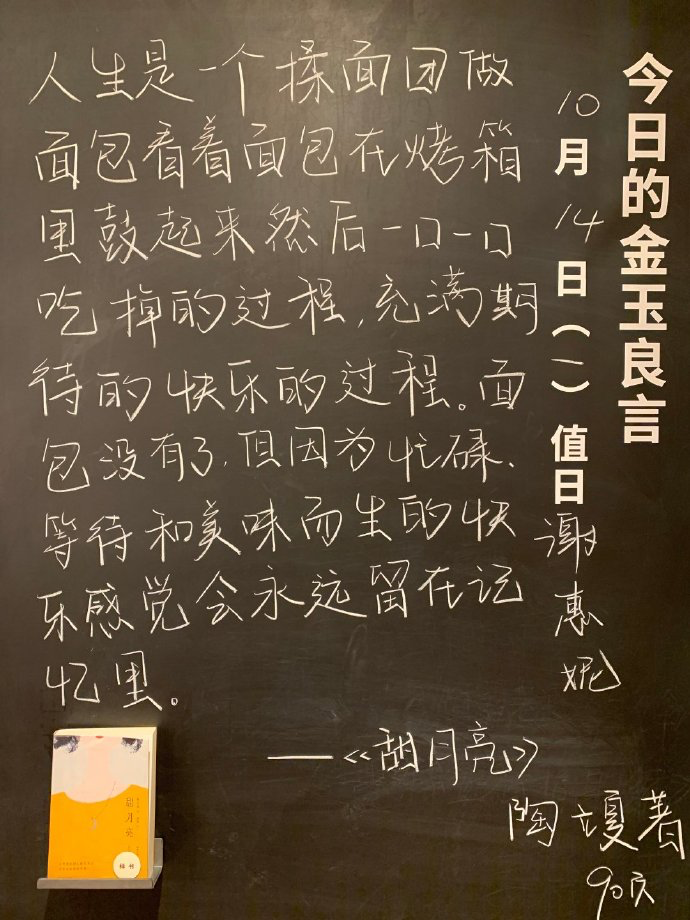 今日的金玉良言
10月14日（一）值日谢惠妮
人生是一个揉面团做
面包看着面包在烤箱
里鼓起来然后一口一口
吃掉的过程,充满期
待的快乐的过程。面
包没有了,但因为忙碌、
等待和美味而生的快
乐感觉会永远留在记
忆里。
——《甜月亮》
陶瓊著
90页
甜月亮
样书